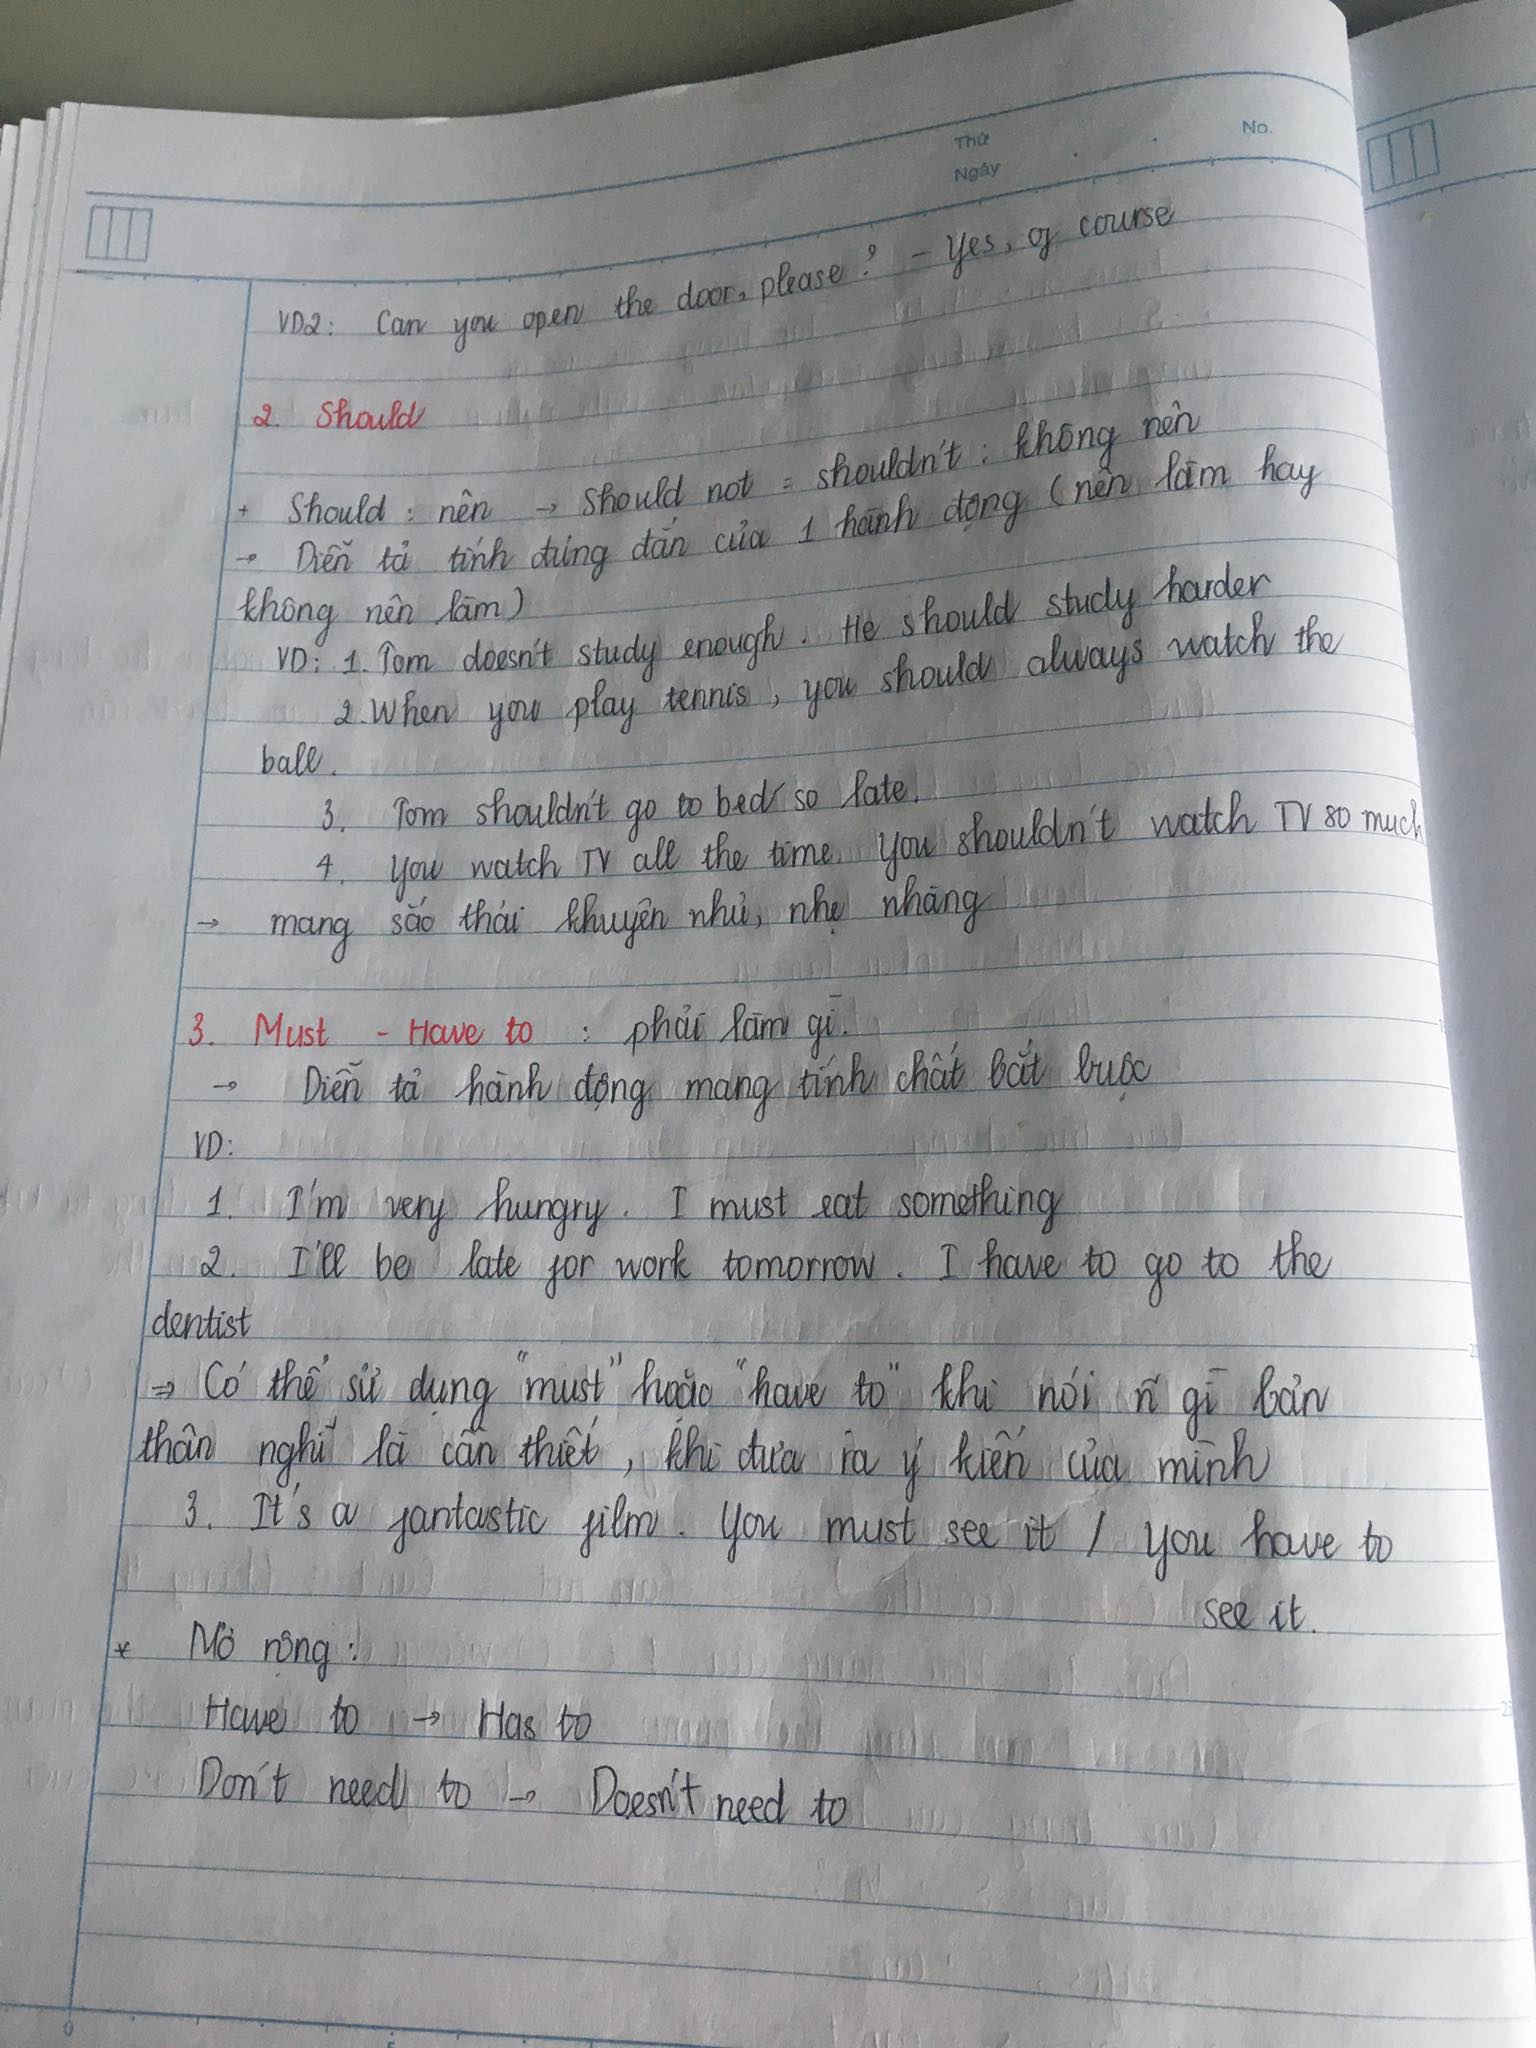 Thứ
Ngày
No.
VD2: Can you open the door, please? - Yes, of course
2. Should
+ Should : nên → Should not = shouldn't : không nên
→ Diễn tả tính đúng đắn của 1 hành động (nên làm hay
không nên làm)
VD: 1. Tom doesn't study enough. He should study harder
2. When you play tennis, you should always watch the
ball.
3. Tom shouldn't go to bed so late.
4. You watch TV all the time. You shouldn't watch TV so much
→ mang sắc thái khuyên nhủ, nhẹ nhàng
3. Must - Have to : phải làm gì.
→ Diễn tả hành động mang tính chất bắt buộc
VD:
1. I'm very hungry. I must eat something
2. I'll be late for work tomorrow. I have to go to the
dentist
⇒ Có thể sử dụng "must" hoặc "have to" khi nói ~ gì bản
thân nghĩ là cần thiết, khi đưa ra ý kiến của mình
3. It's a fantastic film. You must see it / You have to
see it.
* Mở rộng :
Have to → Has to
Don't need to → Doesn't need to
0
5